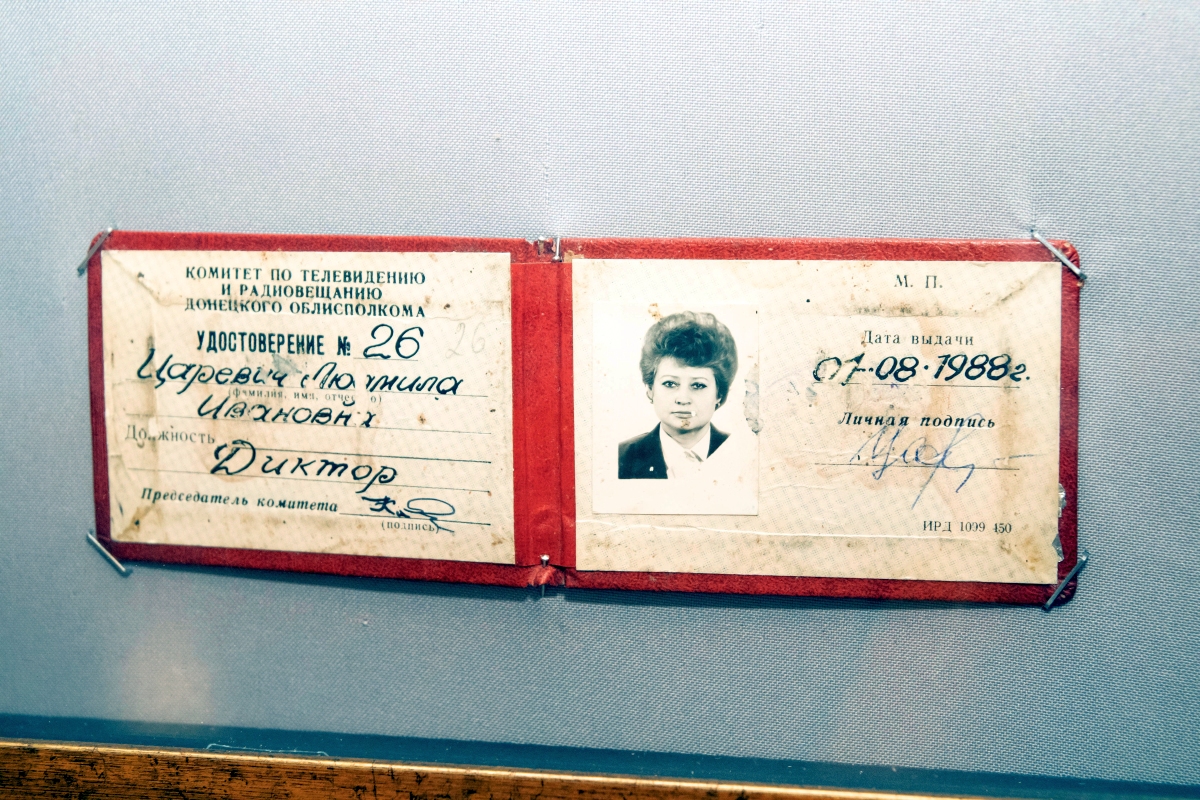 КОМИТЕТ ПО ТЕЛЕВИДЕНИЮ
И РАДИОВЕЩАНИЮ
ДОНЕЦКОГО ОБЛИСПОЛКОМА
УДОСТОВЕРЕНИЕ № 26 26
Царевич Людмила
(фамилия, имя, отчество)
Ивановна
Должность
Диктор
Председатель комитета
(подпись)
М. П.
Дата выдачи
01·08·1988г.
Личная подпись
ИРД 1099 450